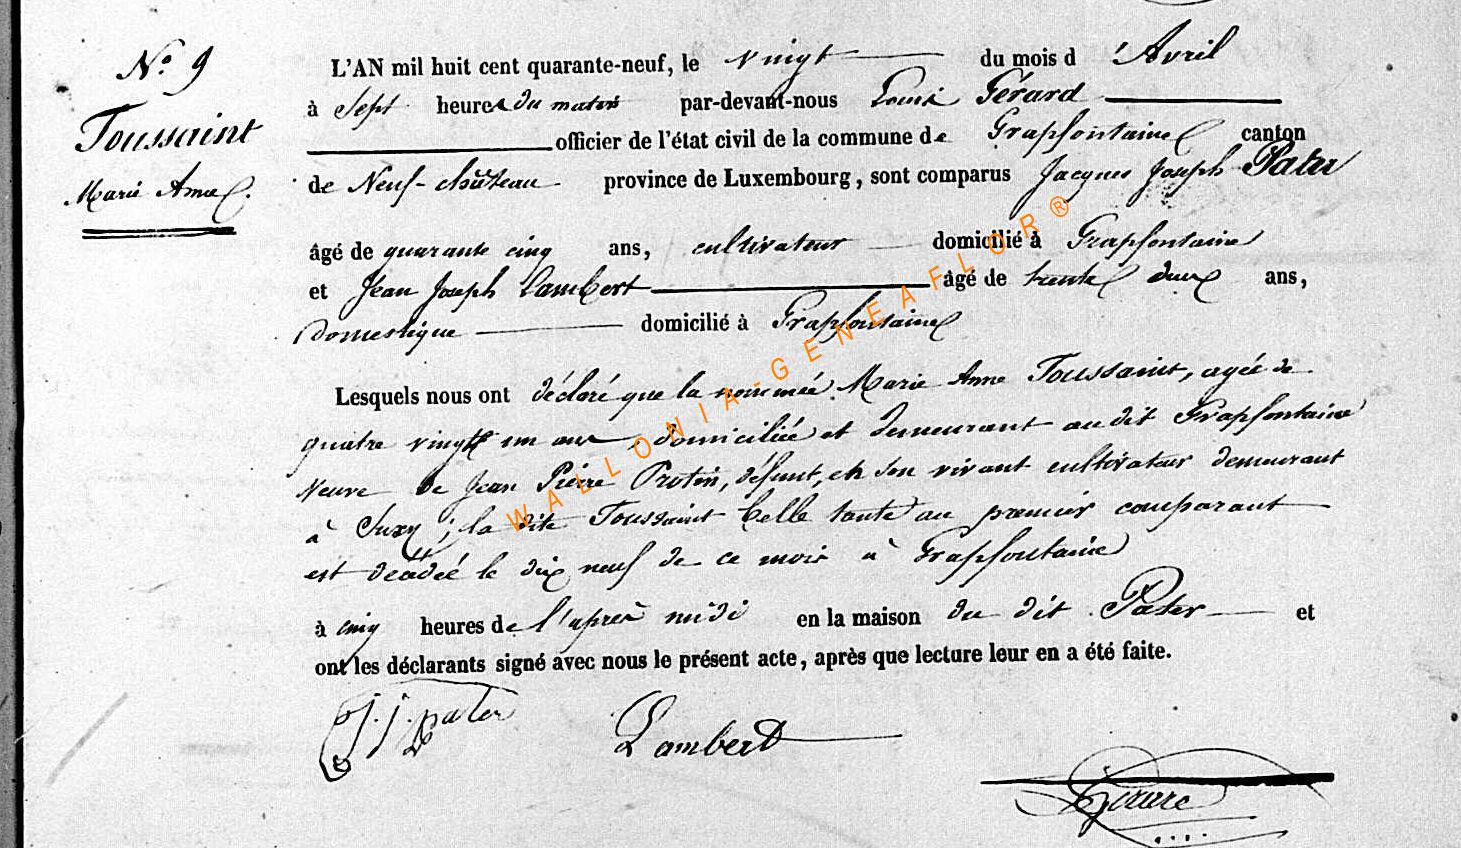 N.° 9
Toussaint
Marie Anne
L'AN mil huit cent quarante-neuf, le vingt du mois d'Avril
à Sept heures du matin par-devant-nous Louis Gérard
officier de l'état civil de la commune de Grapfontaine canton
de Neuf-château province de Luxembourg, sont comparus Jacques Joseph Pater
âgé de quarante cinq ans, cultivateur domicilié à Grapfontaine
et Jean Joseph Lambert âgé de trente deux ans,
Domestique domicilié à Grapfontaine
Lesquels nous ont déclaré que la nommée Marie Anne Toussaint, agée de
quatre vingt un ans, domiciliée et demeurant au dit Grapfontaine
Veuve de Jean Pierre Protin, défunt, en son vivant cultivateur demeurant
à Suxy; la dite Toussaint belle tante au premier comparant
est décédée le dix neuf de ce mois à Grapfontaine
à cinq heures de l'après midi en la maison du dit Pater et
ont les déclarants signé avec nous le présent acte, après que lecture leur en a été faite.
J. J. Pater
Lambert
Gérard
WALLONIA-GENEAFLOR®